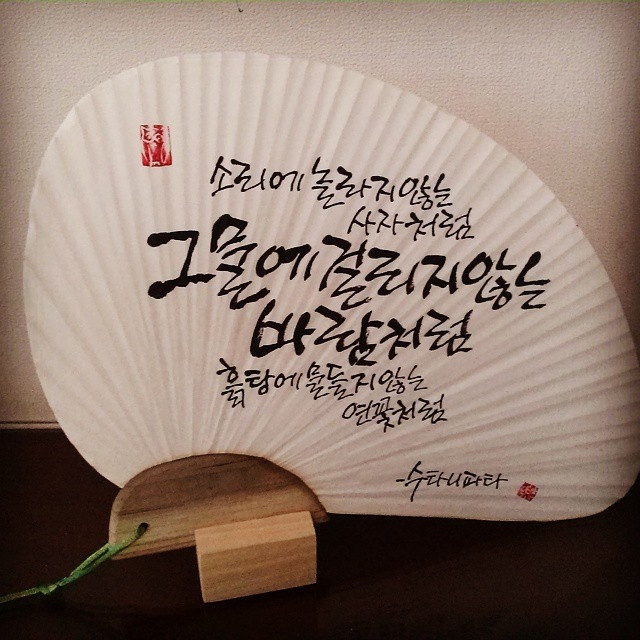 소리에 놀라지않는
사자처럼
그물에 걸리지않는
바람처럼
흙탕에 물들지않는
연꽃처럼
-수타니파타